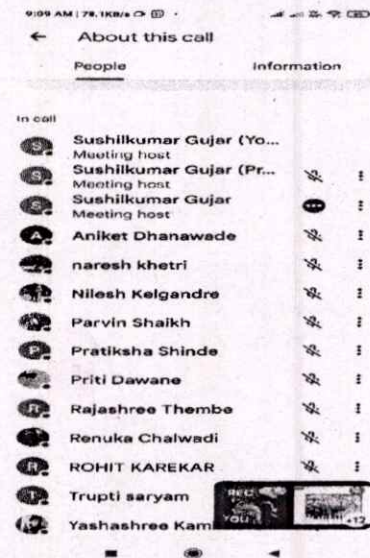 9:09 AM | 78.1KB/s
← About this call
People Information
In call
S Sushilkumar Gujar (Yo...
Meeting host
S Sushilkumar Gujar (Pr...
Meeting host
S Sushilkumar Gujar
Meeting host
A Aniket Dhanawade
naresh khetri
Nilesh Kelgandre
Parvin Shaikh
P Pratiksha Shinde
Priti Dawane
R Rajashree Thembe
Renuka Chalwadi
R ROHIT KAREKAR
T Trupti saryam
REC
YOU
+12
Yashashree Kam